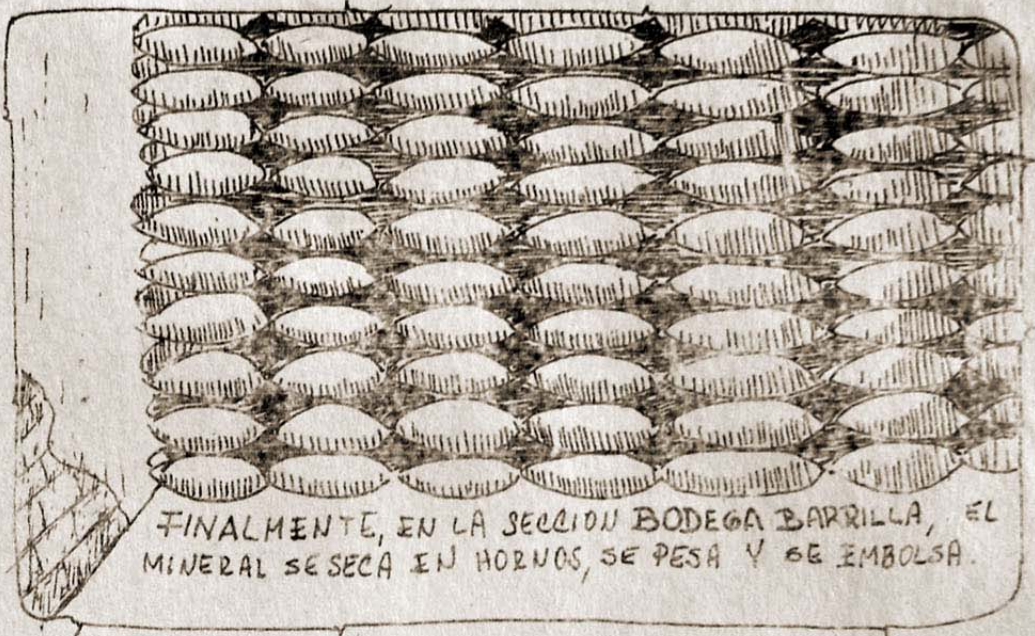 FINALMENTE, EN LA SECCION BODEGA BARRILLA, EL
MINERAL SE SECA EN HORNOS, SE PESA Y SE EMBOLSA.